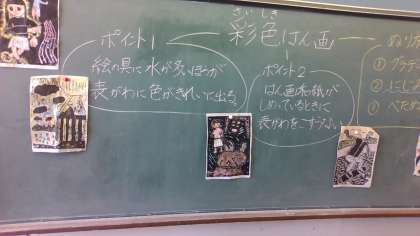 さいしき
彩色はん画
ポイント1
絵の具に水が多いほうが
表がわに色がきれいに出る。
ポイント2
はん画和紙が
しめっているときに
表がわをこすらない
ぬり方
① グラデ
② にじみ
③ べた